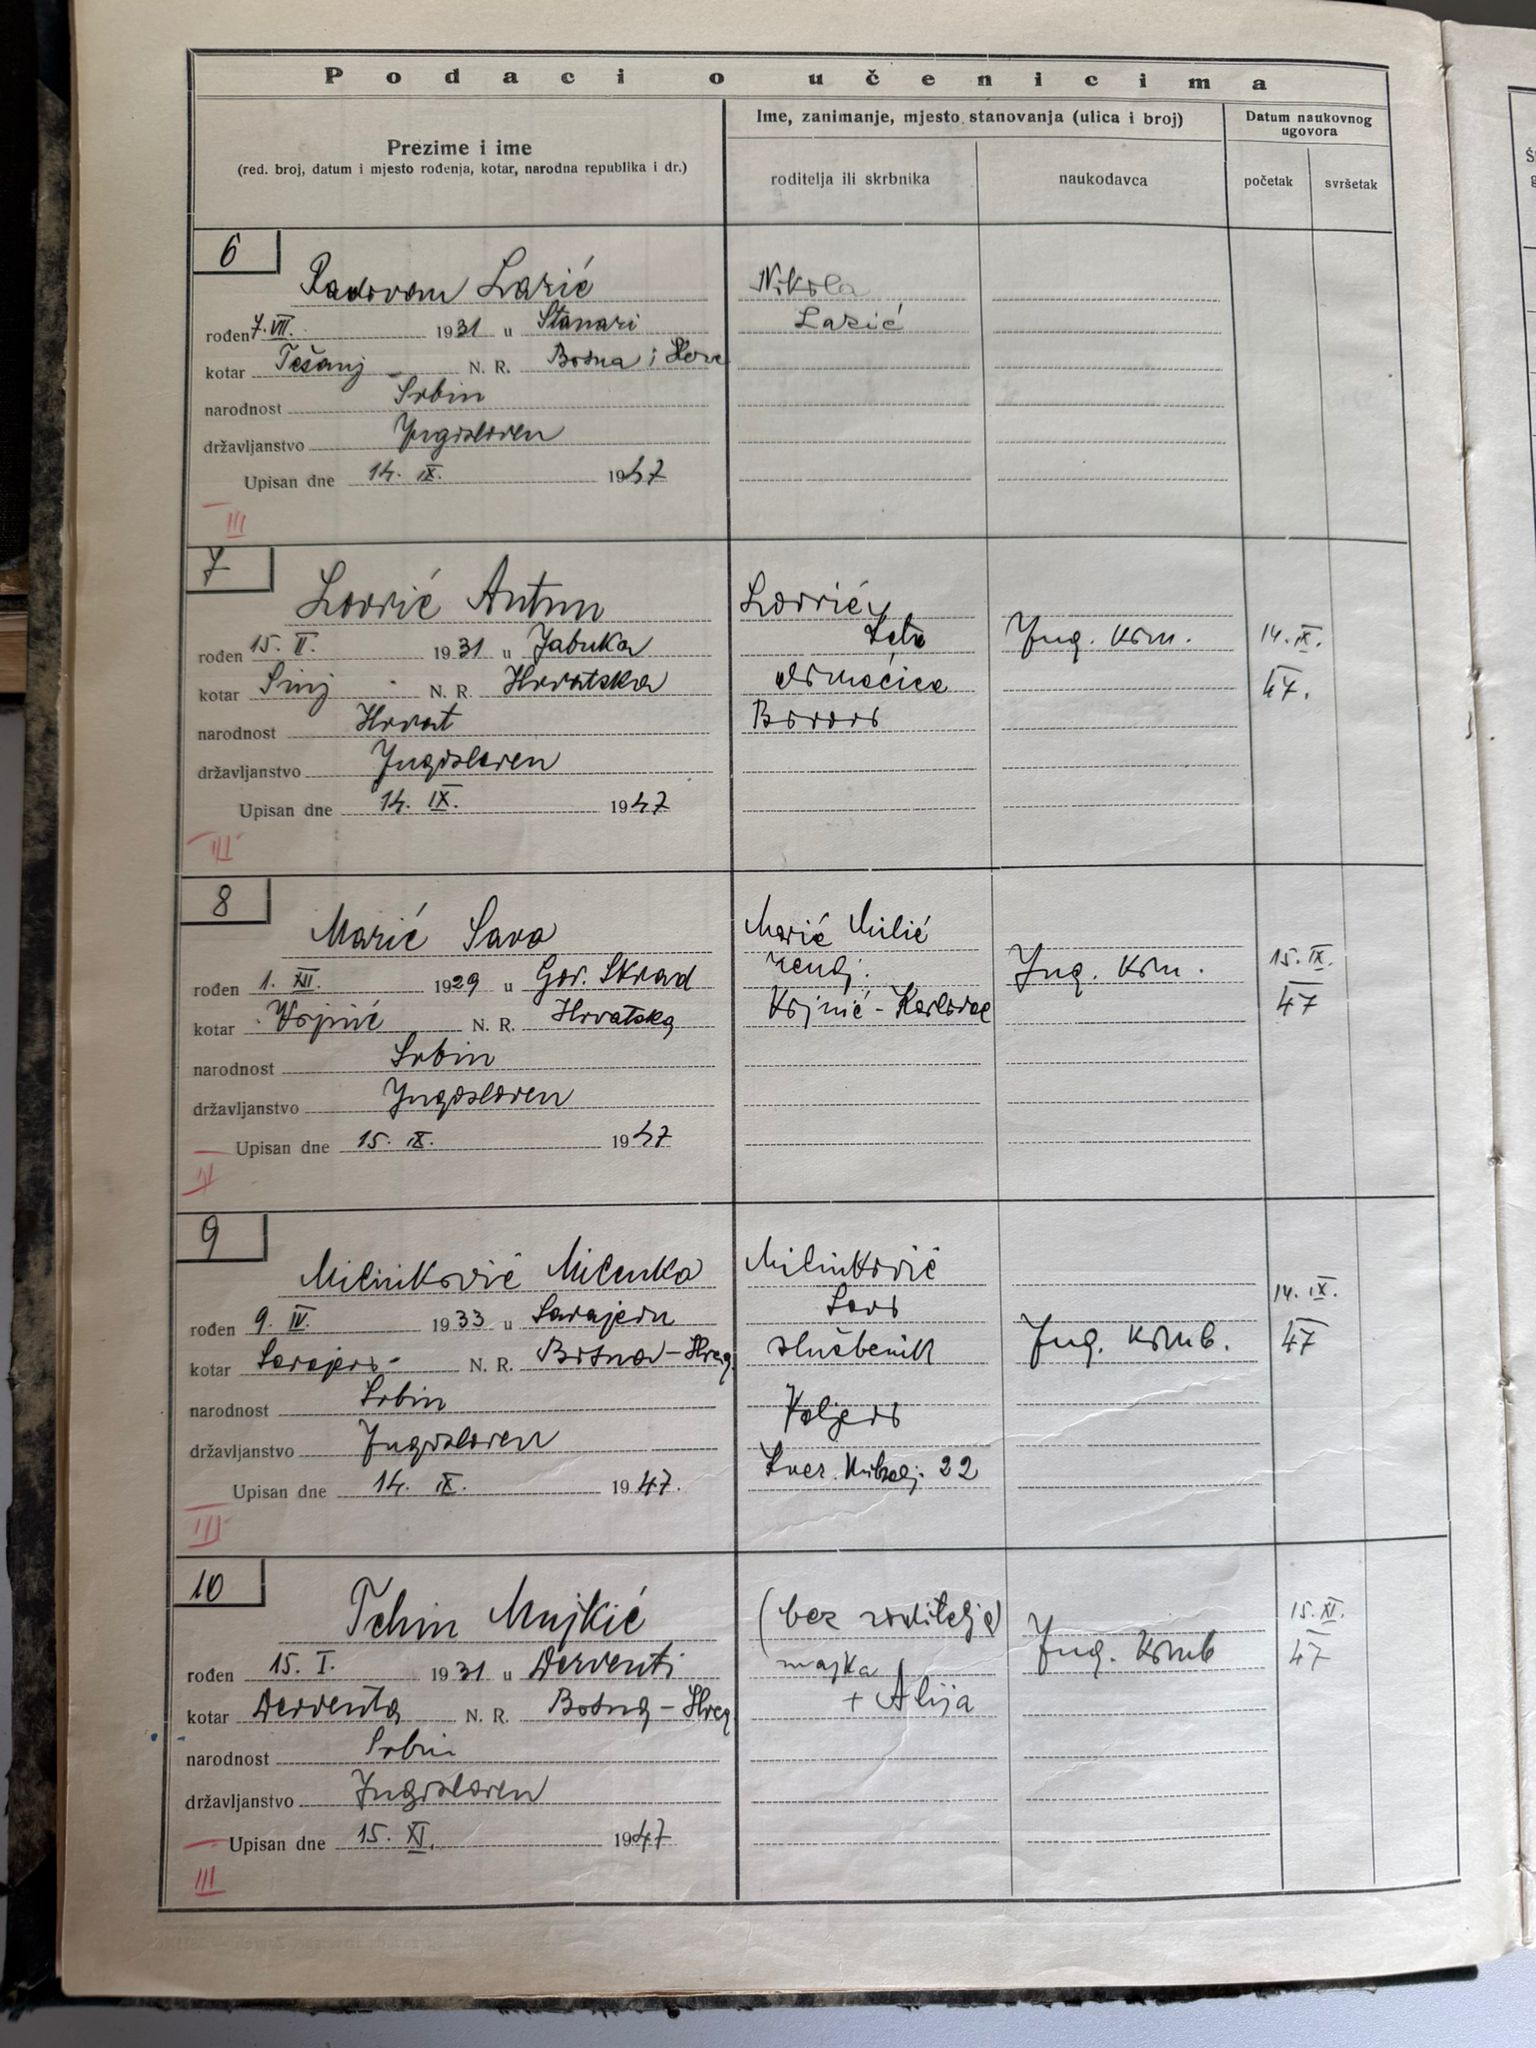 Podaci o učenicima
Prezime i ime
(red. broj, datum i mjesto rođenja, kotar, narodna republika i dr.)
Ime, zanimanje, mjesto stanovanja (ulica i broj)
roditelja ili skrbnika
naukodavca
Datum naukovnog
ugovora
početak
svršetak
6
Radovan Lazić
rođen 7. VII. 1931 u Stanari
kotar Tešanj N. R. Bosna i Herc
narodnost Srbin
državljanstvo Jugosloven
Upisan dne 14. IX. 1947
III
Nikola
Lazić
7
Lovrić Antun
rođen 15. II. 1931 u Jabuka
kotar Sinj N. R. Hrvatska
narodnost Hrvat
državljanstvo Jugosloven
Upisan dne 14. IX. 1947
III
Lovrić
domaćica
Borovo
Jug. kom.
14. IX.
47.
8
Marić Sava
rođen 1. XII. 1929 u Gor. Skrad
kotar Vojnić N. R. Hrvatska
narodnost Srbin
državljanstvo Jugosloven
Upisan dne 15. IX. 1947
Marić Milić
zemlj.
Vojnić - Karlovac
Jug. kom.
15. IX.
47
9
Milinković Milenko
rođen 9. IV. 1933 u Sarajevu
kotar Sarajevo N. R. Bosna - Herceg
narodnost Srbin
državljanstvo Jugosloven
Upisan dne 14. IX. 1947.
III
Milinković
Savo
službenik
22
Jug. komb.
14. IX.
47
10
Tehin Mujkić
rođen 15. I. 1931 u Derventi
kotar Derventa N. R. Bosna - Herceg
narodnost Srbin
državljanstvo Jugosloven
Upisan dne 15. XI. 1947
III
(bez roditelja)
majka
+ Alija
Jug. komb
15. XI.
47